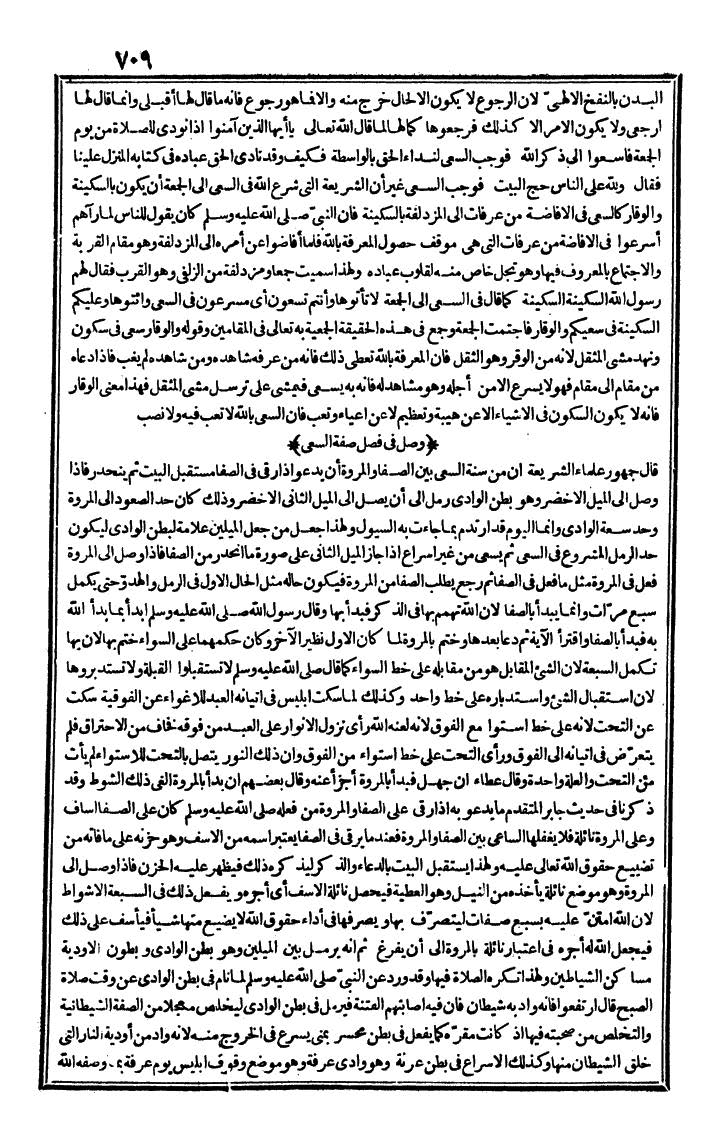 ٧٠٩
البدن بالنفخ الالهى لان الرجوع لا يكون الالحال خرج منه والافاهو رجوع فانه ما قال لها أقبلى وانما قال لها
ارجعى ولا يكون الامر الا كذلك فرجعوها كما لها لما قال الله تعالى ياأيها الذين آمنوا اذا نودى للصلاة من يوم
الجمعة فاسعوا الى ذكر الله فوجب السعى لنداء الحق بالواسطة فكيف وقد نادى الحق عباده فى كتابه المنزل علينا
فقال ولله على الناس حج البيت فوجب السعى غير أن الشريعة التى شرع الله فى السعى الى الجمعة أن يكون بالسكينة
والوقار كالسعى فى الافاضة من عرفات الى المزدلفة بالسكينة فان النبى صلى الله عليه وسلم كان يقول للناس لما رآهم
أسرعوا فى الافاضة من عرفات التى هى موقف حصول المعرفة بالله فلما أفاضوا عن أمره الى المزدلفة وهو مقام القربة
والاجتماع بالمعروف فيها وهو تجل خاص منه لقلوب عباده ولهذا سميت جمعا ومزدلفة من الزلفى وهو القرب فقال لهم
رسول الله السكينة السكينة كما قال فى السعى الى الجمعة لا تأتوها وأنتم تسعون أى مسرعون فى السعى وائتوها وعليكم
السكينة فى سعيكم والوقار فاجتمت الجمعة وجمع فى هذه الحقيقة الجمعية به تعالى فى المقامين وقوله والوقار سعى فى سكون
وتهد مشى المثقل لانه من الوقر وهو الثقل فان المعرفة بالله تعطى ذلك فانه من عرفه شاهده ومن شاهده لم يغب فاذا دعاه
من مقام الى مقام فهو لا يسرع الا من أجله وهو مشاهد له فانه به يسعى فيمشى على ترسل مشى المثقل فهذا معنى الوقار
فانه لا يكون السكون فى الاشياء الا عن هيبة وتعظيم لا عن اعياء وتعب فان السعى بالله لا تعب فيه ولا نصب
﴿وصل فى فصل صفة السعى﴾
قال جمهور علماء الشريعة ان من سنة السعى بين الصفا والمروة أن يدعو اذا رقى فى الصفا مستقبل البيت ثم ينحدر فاذا
وصل الى الميل الاخضر وهو بطن الوادى رمل الى أن يصل الى الميل الثانى الاخضر وذلك كان حد الصعود الى المروة
وحد سعة الوادى وانما اليوم قد ارتدم بما جاءت به السيول ولهذا جعل من جعل الميلين علامة لبطن الوادى ليكون
حد الرمل المشروع فى السعى ثم يسعى من غير اسراع اذا جاز الميل الثانى على صورة ما انحدر من الصفا فاذا وصل الى المروة
فعل فى المروة مثل ما فعل فى الصفا ثم رجع يطلب الصفا من المروة فيكون حاله مثل الحال الاول فى الرمل والهدو حتى يكمل
سبع مرات وانما يبدأ بالصفا لان الله تهمم بها فى الذكر فبدأ بها وقال رسول الله صلى الله عليه وسلم ابدأ بما بدأ الله
به فبدأ بالصفا وقرأ الآية ثم دعا بعدها وختم بالمروة لما كان الاول نظير الآخر وكان حكمهما على السواء ختم بها لان بها
تكمل السبعة لان الشئ المقابل هو من مقابله على خط السواء كما قال صلى الله عليه وسلم لا تستقبلوا القبلة ولا تستدبروها
لان استقبال الشئ واستدباره على خط واحد وكذلك لما سكت ابليس فى اتيانه العبد للاغواء عن الفوقية سكت
عن التحت لانه على خط استوا مع الفوق لانه لعنه الله رأى نزول الانوار على العبد من فوقه فخاف من الاحتراق فلم
يتعرض فى اتيانه الى الفوق ورأى التحت على خط استواء من الفوق وان ذلك النور يتصل بالتحت للاستواء لم يأت
من التحت والعلة واحدة وقال عطاء ان جهل فبدأ بالمروة أجزأ عنه وقال بعضهم ان بدأ بالمروة الغى ذلك الشوط وقد
ذكرنا فى حديث جابر المتقدم ما يدعو به اذا رقى على الصفا والمروة من فعله صلى الله عليه وسلم كان على الصفا اساف
وعلى المروة نائلة فلا يغفلها الساعى بين الصفا والمروة فعند ما يرقى فى الصفا يعتبر اسمه من الاسف وهو حزنه على ما فاته من
تضييع حقوق الله تعالى عليه ولهذا يستقبل البيت بالدعاء والذكر ليذكره ذلك فيظهر عليه الحزن فاذا وصل الى
المروة وهو موضع نائلة يأخذه من النيل وهو العطية فيحصل نائلة الاسف أى أجره ويفعل ذلك فى السبعة الاشواط
لان الله امتن عليه بسبع صفات ليتصرف بها ويصرفها فى أداء حقوق الله لا يضيع منها شيأ فيأسف على ذلك
فيجعل الله له أجره فى اعتبار نائلة بالمروة الى أن يفرغ ثم انه يرمل بين الميلين وهو بطن الوادى وبطون الاودية
مساكن الشياطين ولهذا تكره الصلاة فيها وقد ورد عن النبى صلى الله عليه وسلم لما نام فى بطن الوادى عن وقت صلاة
الصبح قال ارتفعوا فانه واد به شيطان فان فيه اصابتهم الفتنة فيرمل فى بطن الوادى ليخلص معجلا من الصفة الشيطانية
والتخلص من صحبته فيها اذ كانت مقره كما يفعل فى بطن محسر بمنى يسرع فى الخروج منه لانه واد من أودية النار التى
خلق الشيطان منها وكذلك الاسراع فى بطن عرنة وهو وادى عرفة وهو موضع وقوف ابليس يوم عرفة بما وصفه الله